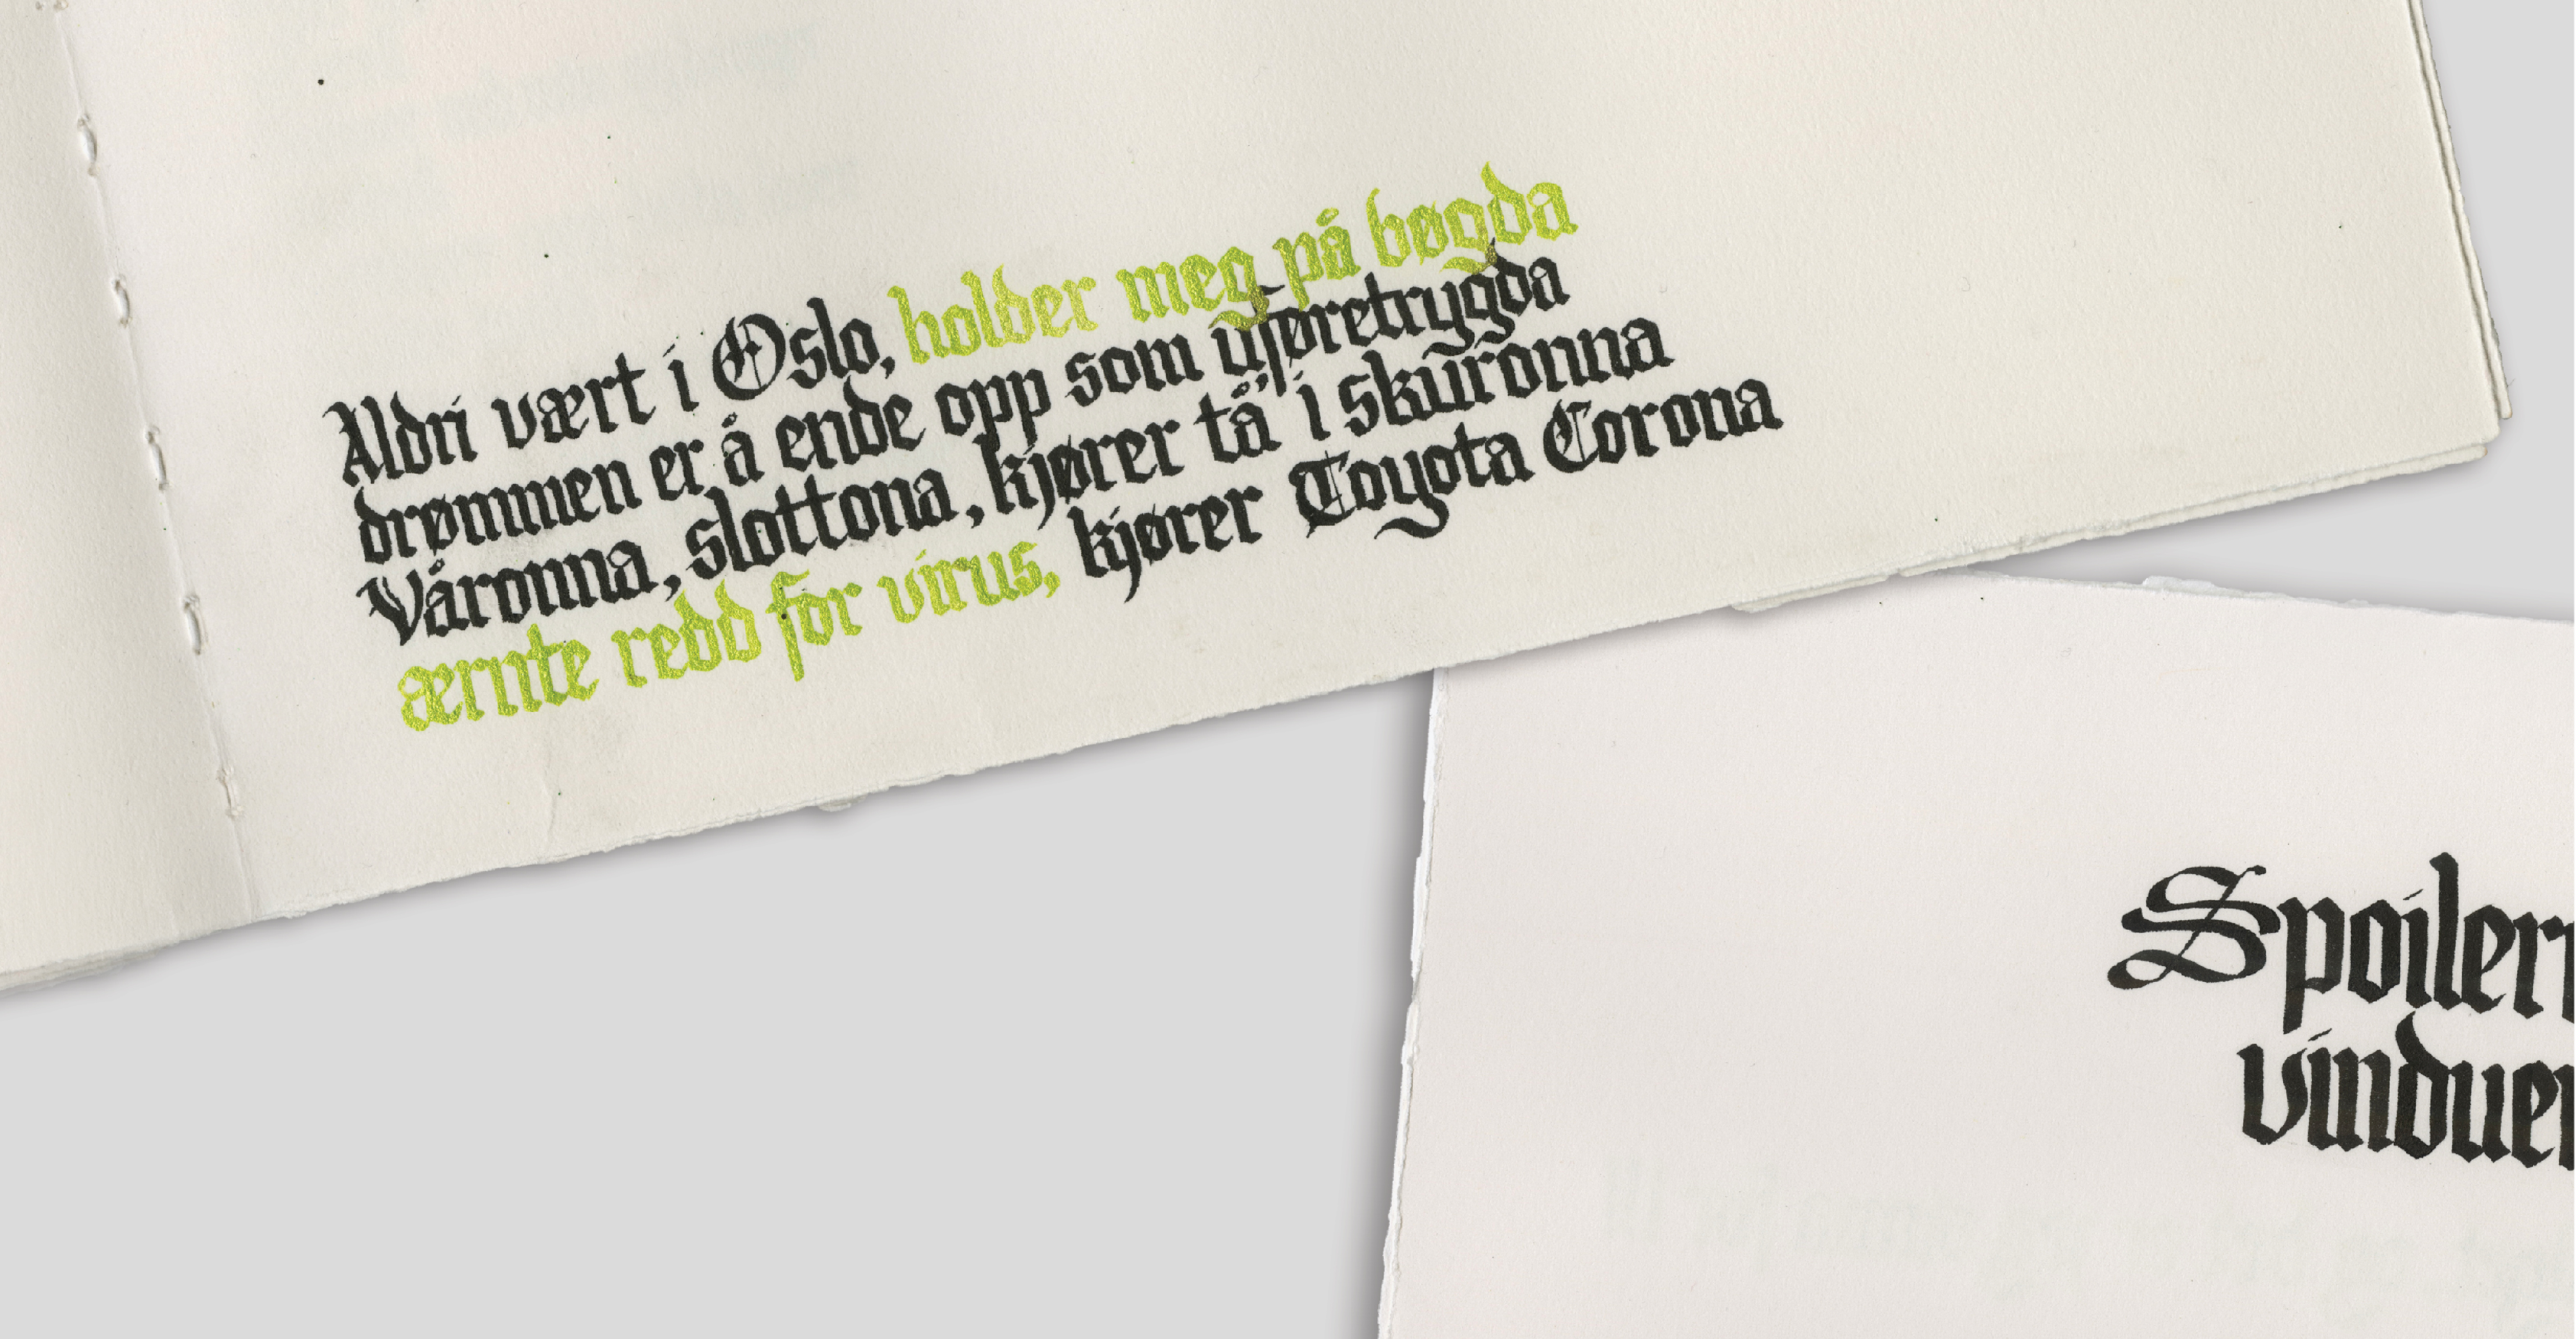 Aldri vært i Oslo, holder meg på bøgda
drømmen er å ende opp som uføretrygda
Våronna, slottona, kjører tå i skuronna
ærnte redd for virus, kjører Toyota Corona
Spoiler
vindue